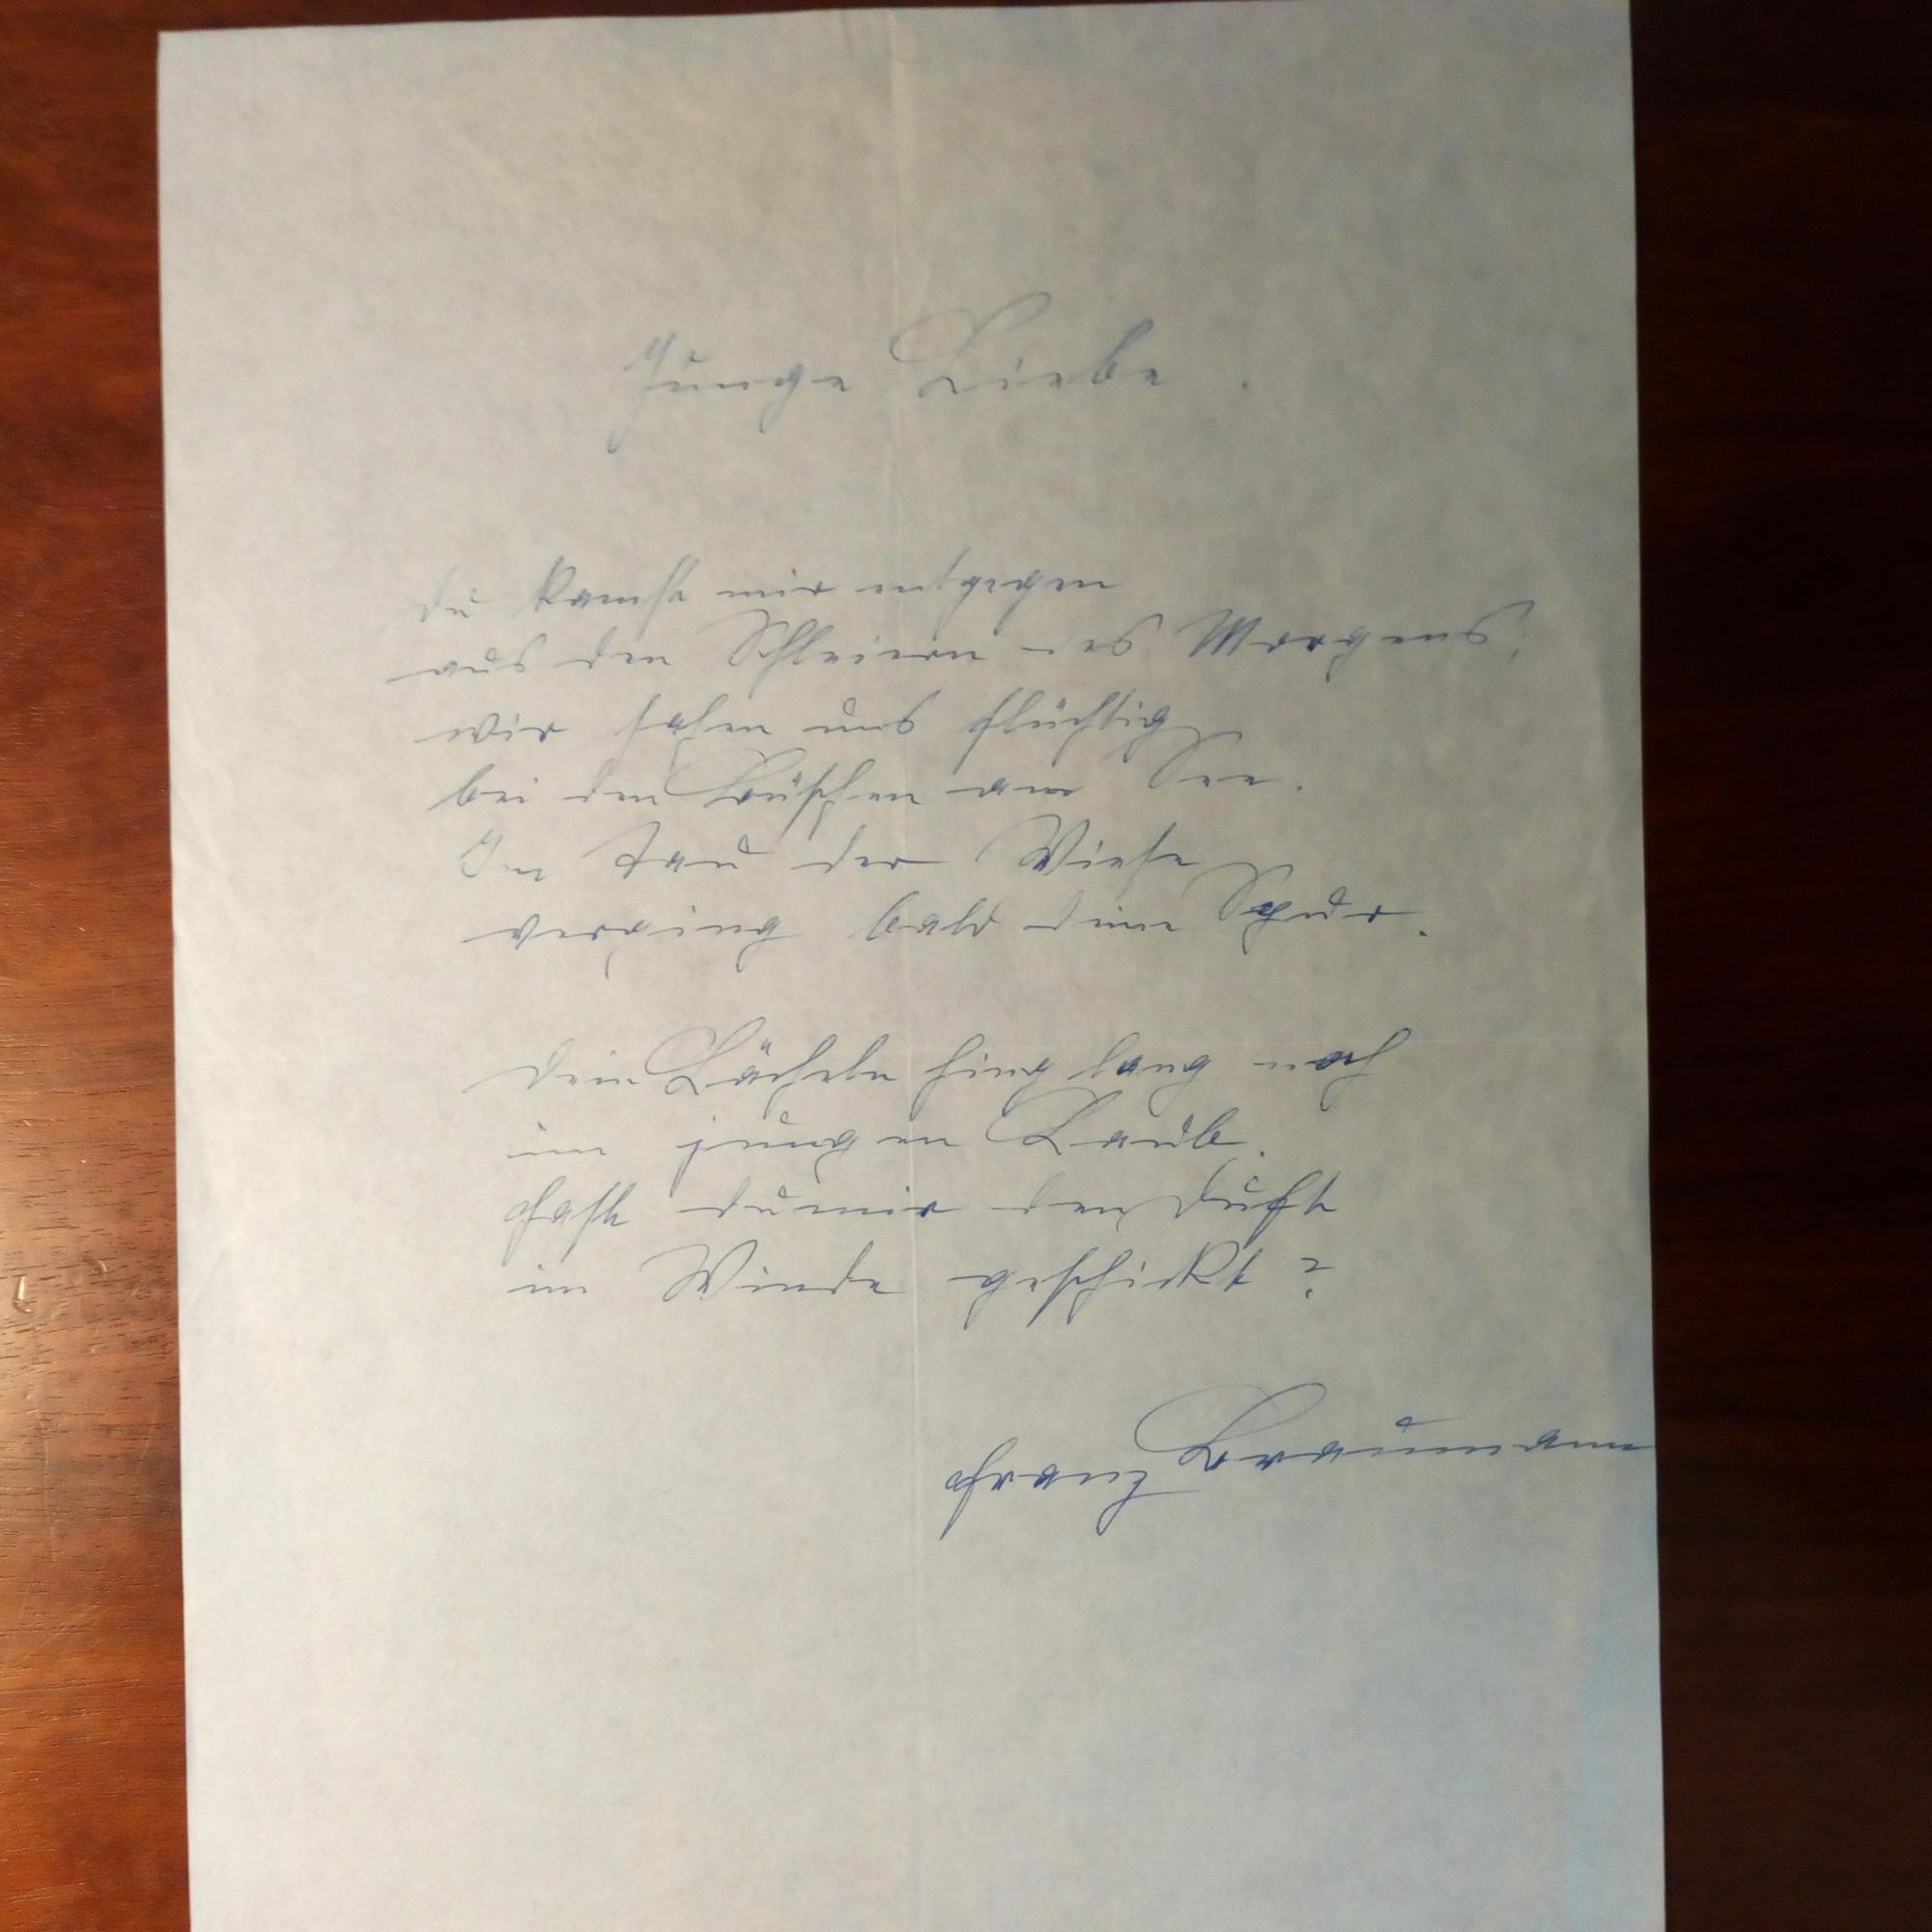 Junge Liebe.
Du kamst mir entgegen
aus den Schleiern des Morgens;
wir sahen uns flüchtig
bei den Büschen am See.
Im Tau der Wiese
verging bald deine Spur.
Dein Lächeln hing lang noch
im jungen Laub.
Hast du mir den Duft
im Winde geschickt?
Franz Braumann